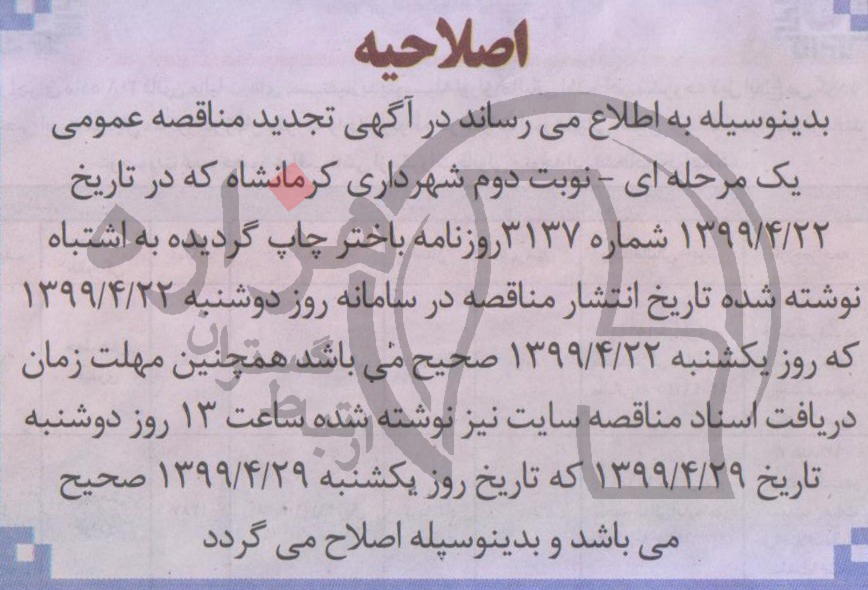 اصلاحیه
بدینوسیله به اطلاع می رساند در آگهی تجدید مناقصه عمومی
یک مرحله ای - نوبت دوم شهرداری کرمانشاه که در تاریخ
۱۳۹۹/۴/۲۲ شماره ۳۱۳۷روزنامه باختر چاپ گردیده به اشتباه
نوشته شده تاریخ انتشار مناقصه در سامانه روز دوشنبه ۱۳۹۹/۴/۲۲
که روز یکشنبه ۱۳۹۹/۴/۲۲ صحیح می باشد همچنین مهلت زمان
دریافت اسناد مناقصه سایت نیز نوشته شده ساعت ۱۳ روز دوشنبه
تاریخ ۱۳۹۹/۴/۲۹ که تاریخ روز یکشنبه ۱۳۹۹/۴/۲۹ صحیح
می باشد و بدینوسیله اصلاح می گردد
هزاره